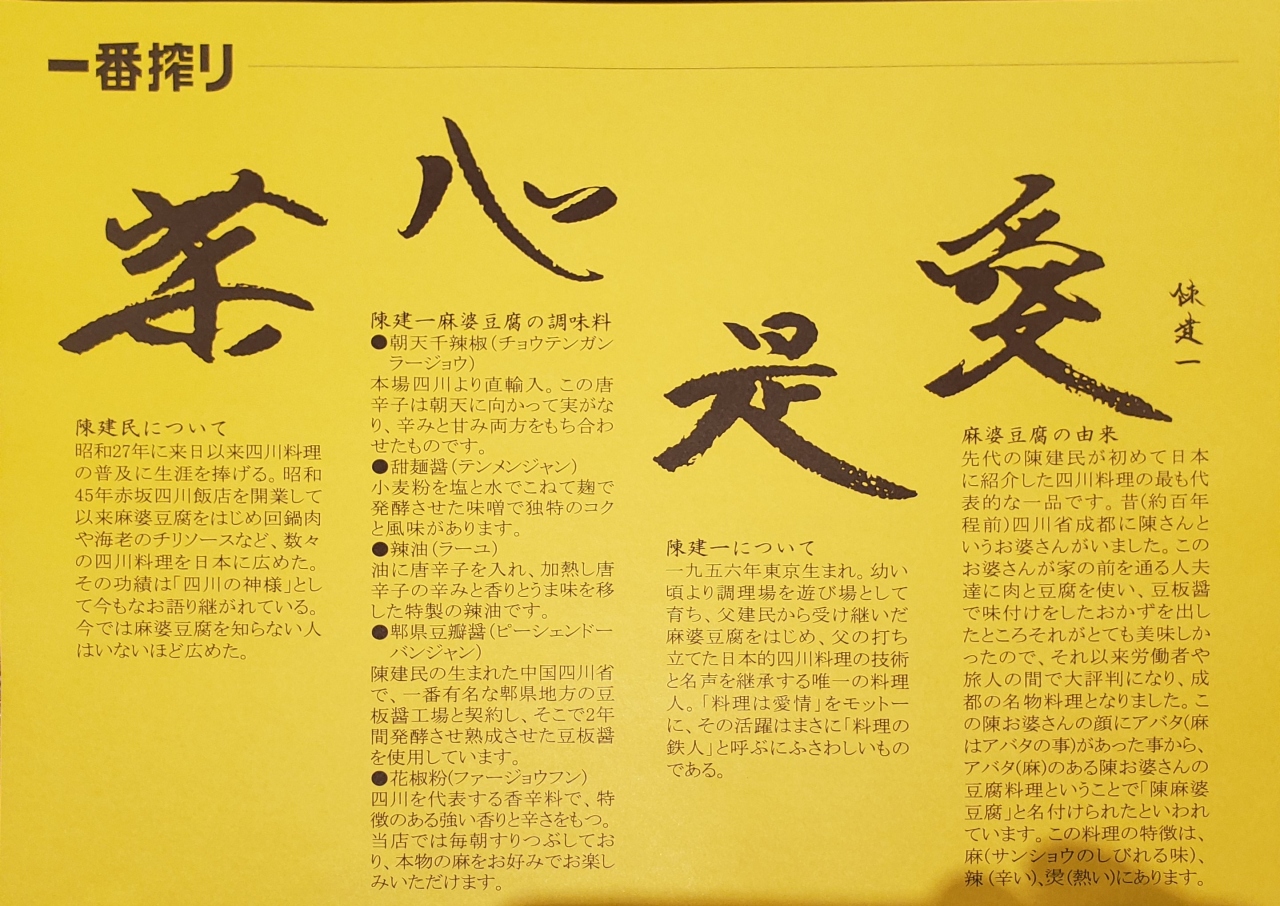 一番搾り
愛
是
心
菜
陳建一
麻婆豆腐の由来
先代の陳建民が初めて日本
に紹介した四川料理の最も代
表的な一品です。昔(約百年
程前)四川省成都に陳さんと
いうお婆さんがいました。この
お婆さんが家の前を通る人夫
達に肉と豆腐を使い、豆板醤
で味付けをしたおかずを出し
たところそれがとても美味しか
ったので、それ以来労働者や
旅人の間で大評判になり、成
都の名物料理となりました。こ
の陳お婆さんの顔にアバタ(麻
はアバタの事)があった事から、
アバタ(麻)のある陳お婆さんの
豆腐料理ということで「陳麻婆
豆腐」と名付けられたといわれ
ています。この料理の特徴は、
麻(サンショウのしびれる味)、
辣(辛い)、燙(熱い)にあります。
陳建一について
一九五六年東京生まれ。幼い
頃より調理場を遊び場として
育ち、父建民から受け継いだ
麻婆豆腐をはじめ、父の打ち
立てた日本的四川料理の技術
と名声を継承する唯一の料理
人。「料理は愛情」をモットー
に、その活躍はまさに「料理の
鉄人」と呼ぶにふさわしいもの
である。
陳建一麻婆豆腐の調味料
●朝天干辣椒(チョウテンガン
ラージョウ)
本場四川より直輸入。この唐
辛子は朝天に向かって実がな
り、辛みと甘み両方をもち合わ
せたものです。
●甜麺醤(テンメンジャン)
小麦粉を塩と水でこねて麹で
発酵させた味噌で独特のコク
と風味があります。
●辣油(ラーユ)
油に唐辛子を入れ、加熱し唐
辛子の辛みと香りとうま味を移
した特製の辣油です。
●郫県豆瓣醤(ピーシェンドー
バンジャン)
陳建民の生まれた中国四川省
で、一番有名な郫県地方の豆
板醤工場と契約し、そこで2年
間発酵させ熟成させた豆板醤
を使用しています。
●花椒粉(ファージョウフン)
四川を代表する香辛料で、特
徴のある強い香りと辛さをもつ。
当店では毎朝すりつぶしてお
り、本物の麻をお好みでお楽し
みいただけます。
陳建民について
昭和27年に来日以来四川料理
の普及に生涯を捧げる。昭和
45年赤坂四川飯店を開業して
以来麻婆豆腐をはじめ回鍋肉
や海老のチリソースなど、数々
の四川料理を日本に広めた。
その功績は「四川の神様」とし
て今もなお語り継がれている。
今では麻婆豆腐を知らない人
はいないほど広めた。